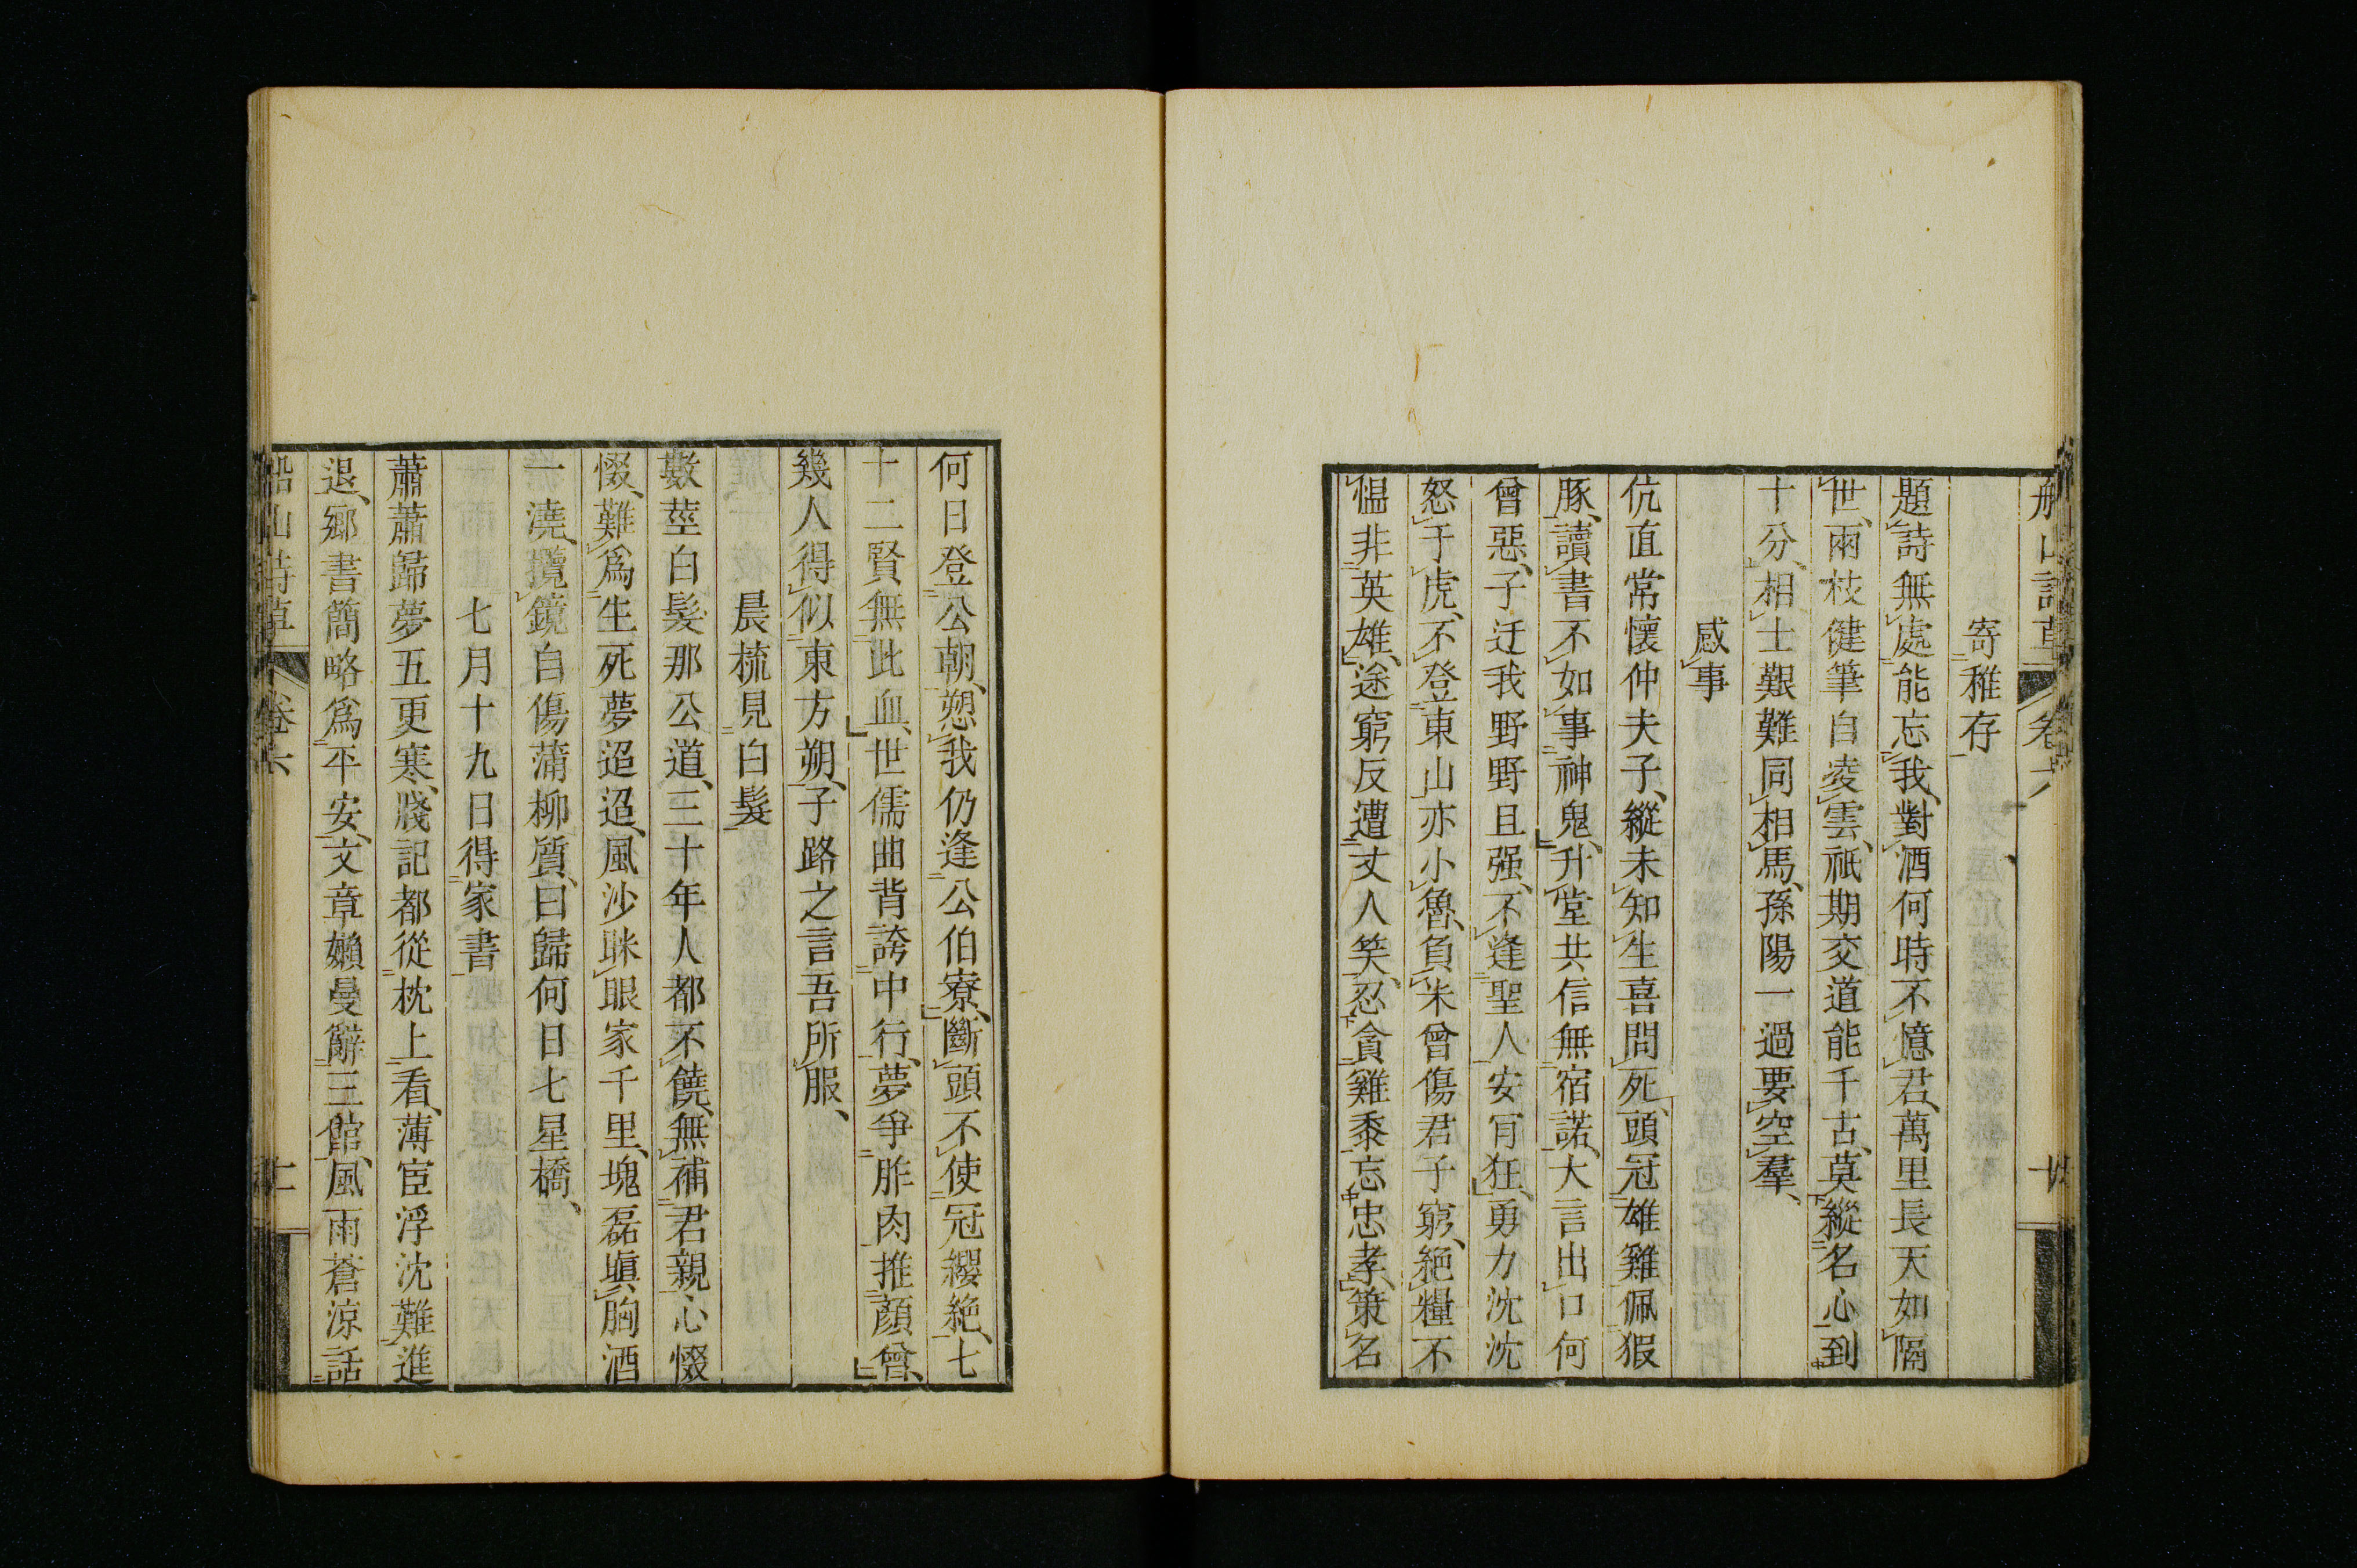 船山詩草 卷六 十
寄稚存
題詩無處能忘我對酒何時不憶君萬里長天如隔
世兩枝健筆自凌雲祇期交道能千古莫縱名心到
十分相士艱難同相馬孫陽一過要空羣
感事
伉直常懷仲夫子縱未知生喜問死頭冠雄雞佩猳
豚讀書不如事神鬼升堂共信無宿諾大言出口何
曾惡子迂我野野且强不逢聖人安肎狂勇力沈沈
怒于虎不登東山亦小魯負米曾傷君子窮絕糧不
慍非英雄途窮反遭丈人笑忍貪雞黍忘忠孝策名
何日登公朝愬我仍逢公伯寮斷頭不使冠纓絶七
十二賢無此血世儒曲背誇中行夢爭胙肉推顏曾
幾人得似東方朔子路之言吾所服
晨梳見白髮
數莖白髮那公道三十年人都不饒無補君親心惙
惙難爲生死夢迢迢風沙眯眼家千里塊磊塡胸酒
一澆攬鏡自傷蒲柳質曰歸何日七星橋
七月十九日得家書
蕭蕭歸夢五更寒牋記都從枕上看薄宦浮沈難進
退鄉書簡略爲平安文章嬾曼辭三館風雨蒼涼話
船山詩草 卷六